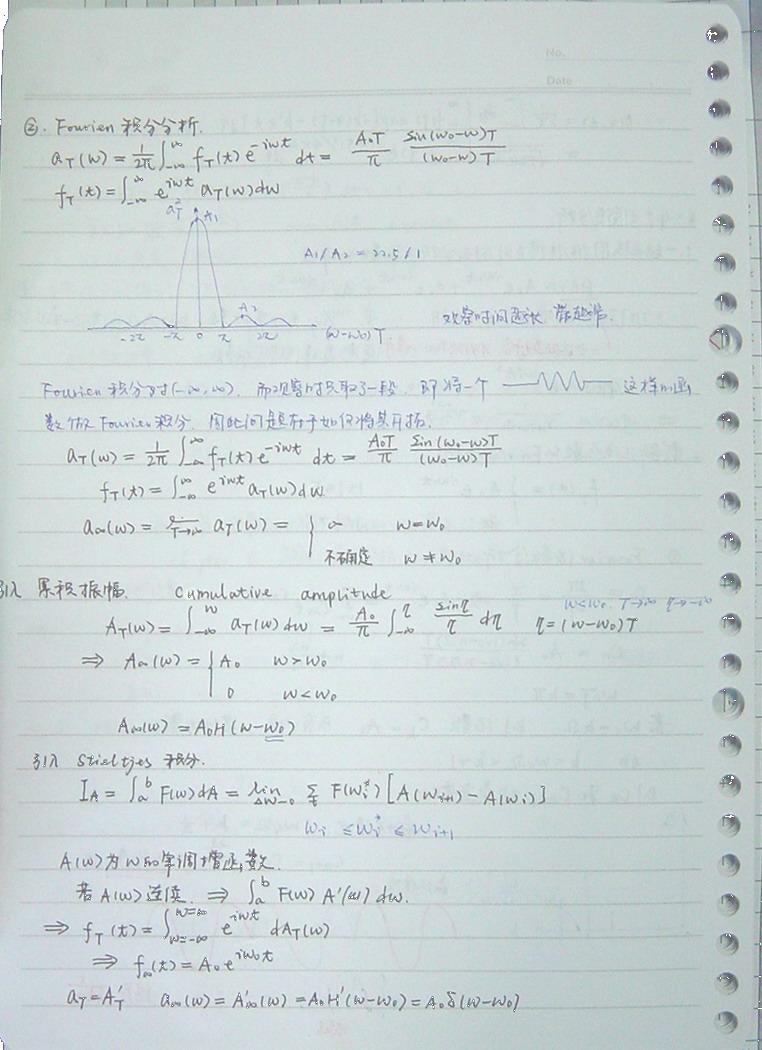 No.
Date
②. Fourien 积分分析.
a_T(w) = 1/2π ∫_{-∞}^{∞} f_T(t) e^{-iwt} dt = A₀T/π sin(w₀-w)T/(w₀-w)T
f_T(t) = ∫_{-∞}^{∞} e^{iwt} a_T(w) dw
a_T² A₁
A₁/A₂ = 22.5/1
A₂
-2π -π 0 π 2π (w-w₀)T
观察时间越长 带越窄.
Fourien 积分对(-∞,∞). 而观察时只取了一段. 即将一个 这样的函
数做 Fourien 积分. 因此问题在于如何将其开拓.
a_T(w) = 1/2π ∫_{-∞}^{∞} f_T(t) e^{-iwt} dt = A₀T/π sin(w₀-w)T/(w₀-w)T
f_T(t) = ∫_{-∞}^{∞} e^{iwt} a_T(w) dw
a_∞(w) = T→∞ a_T(w) = { ∞ w=w₀
不确定 w≠w₀
引入 累积振幅. Cumulative amplitude
w<w₀. T→∞ η→-∞
A_T(w) = ∫_{-∞}^{w} a_T(w) dw = A₀/π ∫_{-∞}^{η} sinη/η dη η=(w-w₀)T
⇒ A_∞(w) = { A₀ w>w₀
0 w<w₀
A_∞(w) = A₀H(w-w₀)
引入 Stieltjes 积分.
I_A = ∫_a^b F(w)dA = lim_{Δw→0} Σ_i F(w_i^*) [A(w_{i+1}) - A(w_i)]
w_i ≤ w_i^* ≤ w_{i+1}
A(w)为w的单调增函数.
若 A(w) 连续. ⇒ ∫_a^b F(w) A'(w) dw.
⇒ f_T(t) = ∫_{w=-∞}^{w=∞} e^{iwt} dA_T(w)
⇒ f_∞(t) = A₀e^{iw₀t}
a_T = A'_T a_∞(w) = A'_∞(w) = A₀H'(w-w₀) = A₀δ(w-w₀)